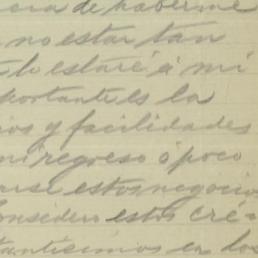 de haberme
no estar tan
lo estaré á mi
portante es la
ios y facilidades
mi regreso ó poco
arse estos negocio
onsidero estos cré-
tantisimos en los